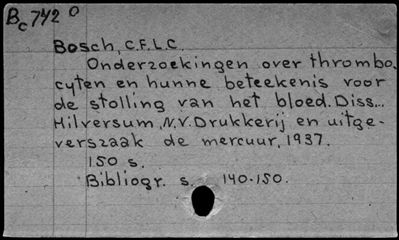 Bc 742 o
Bosch, C.F.L.C.
Onderzoekingen over thrombo,
cyten en hunne beteekenis voor
de stolling van het bloed. Diss...
Hilversum, N.V. Drukkerij en uitge-
verszaak de mercuur, 1937.
150 s.
Bibliogr. s. 140-150.